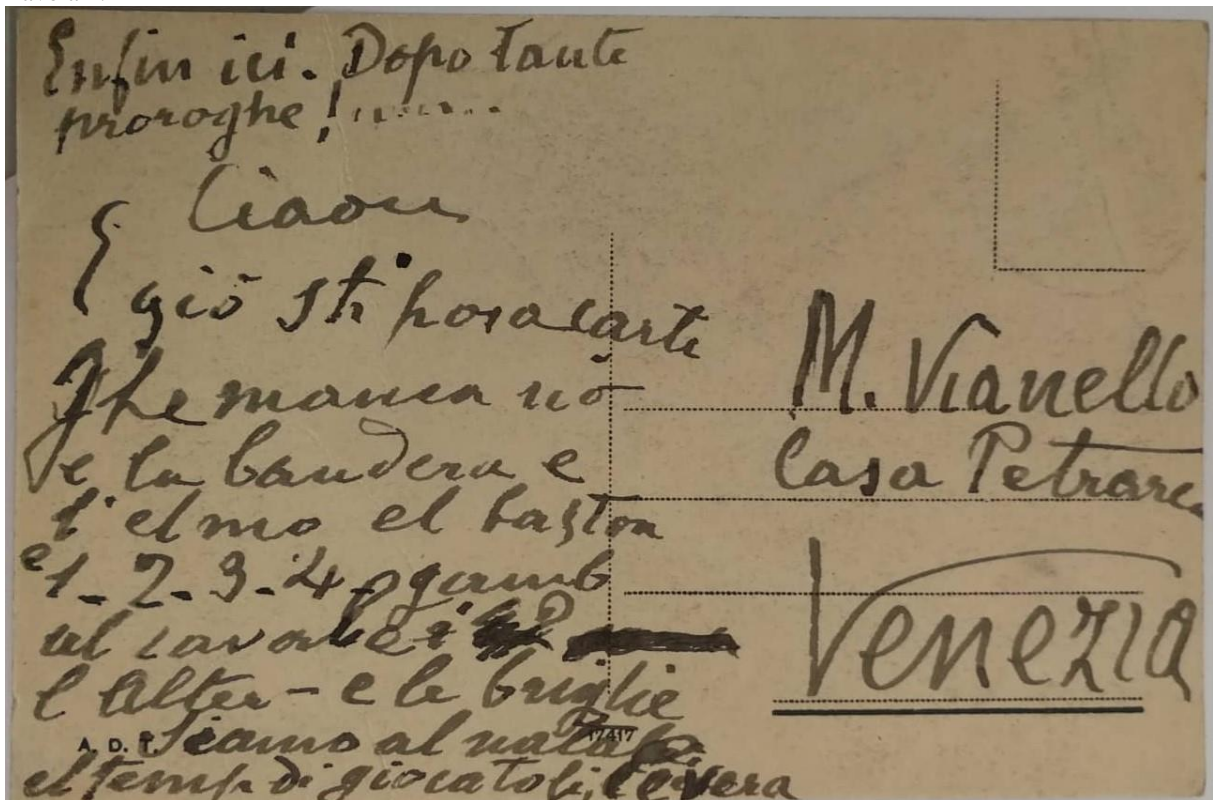 Enfin ici. Dopo tante
proroghe !.......
Ciaou
E giò sti posacarte
Ghe manca nò
e la bandera e
l'elmo el baston
e 1-2-3-4 gamb
al cavaler
l'alter - e le briglie
Siamo al natale
el temp di giocatoli,
A. D. T.
17417
M. Vianello
Casa Petrarca
Venezia